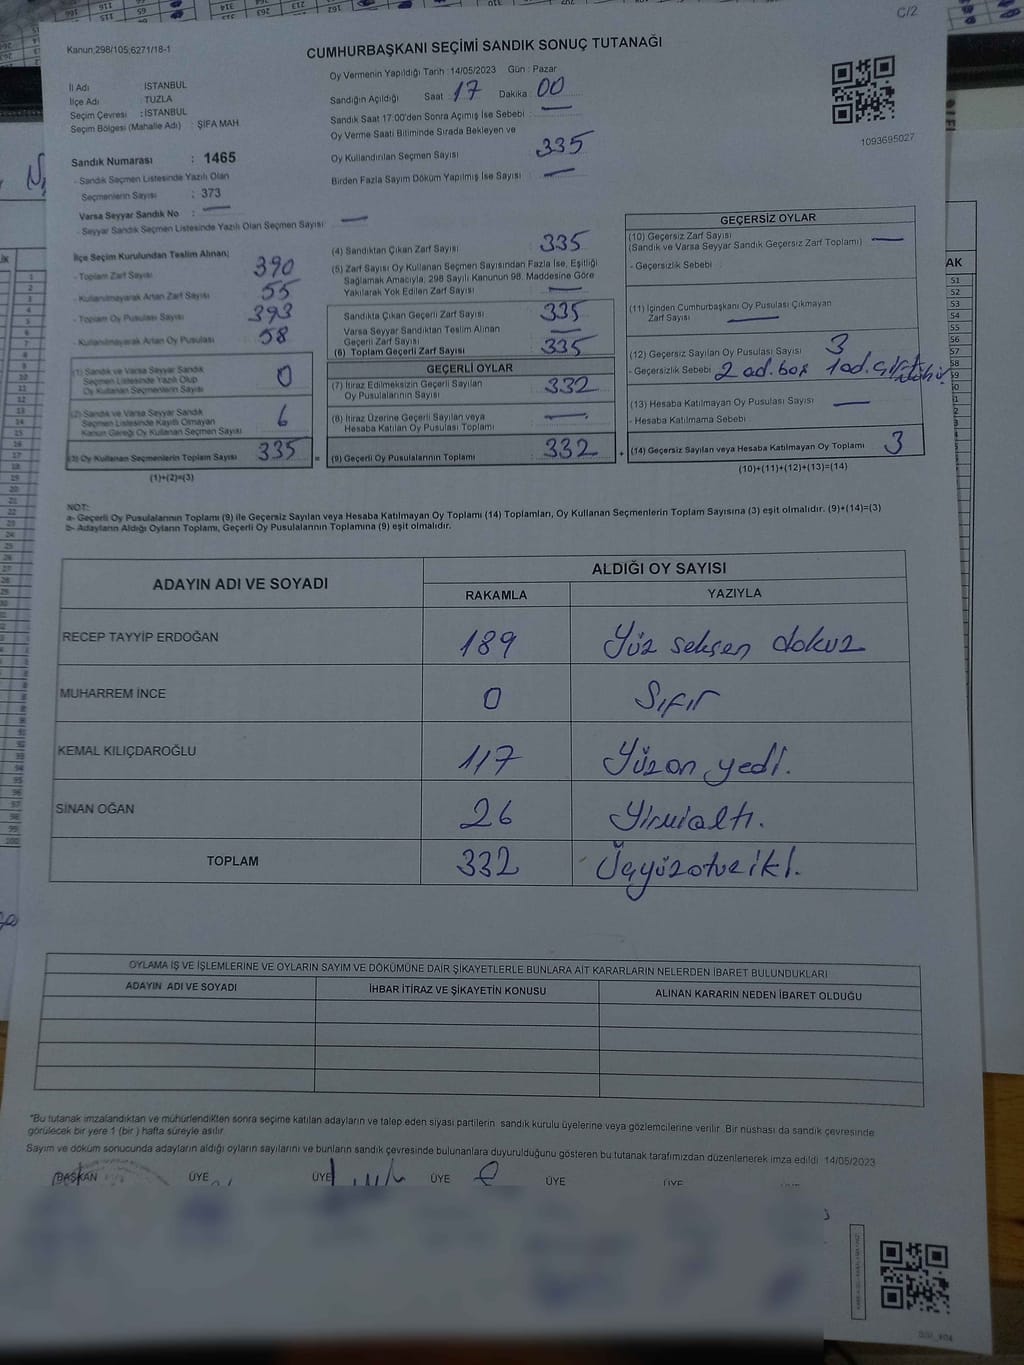 C/2
Kanun;298/105;6271/18-1
CUMHURBAŞKANI SEÇİMİ SANDIK SONUÇ TUTANAĞI
İl Adı İSTANBUL
İlçe Adı : TUZLA
Seçim Çevresi : İSTANBUL
Seçim Bölgesi (Mahalle Adı) : ŞİFA MAH
Sandık Numarası : 1465
- Sandık Seçmen Listesinde Yazılı Olan
Seçmenlerin Sayısı : 373
Varsa Seyyar Sandık No :
- Seyyar Sandık Seçmen Listesinde Yazılı Olan Seçmen Sayısı
Oy Vermenin Yapıldığı Tarih : 14/05/2023 Gün : Pazar
Sandığın Açıldığı Saat : 17 Dakika : 00
Sandık Saat 17:00'den Sonra Açımış İse Sebebi :
Oy Verme Saati Bitiminde Sırada Bekleyen ve
Oy Kullandırılan Seçmen Sayısı 335
Birden Fazla Sayım Döküm Yapılmış İse Sayısı :
1093695027
İlçe Seçim Kurulundan Teslim Alınan;
- Toplam Zarf Sayısı 390
- Kullanılmayarak Artan Zarf Sayısı 55
- Toplam Oy Pusulası Sayısı 393
- Kullanılmayarak Artan Oy Pusulası 58
(1) Sandık ve Varsa Seyyar Sandık
Seçmen Listesinde Yazılı Olup
Oy Kullanan Seçmenlerin Sayısı 0
(2) Sandık ve Varsa Seyyar Sandık
Seçmen Listesinde Kayıtlı Olmayan
Kanun Gereği Oy Kullanan Seçmen Sayısı 6
(3) Oy Kullanan Seçmenlerin Toplam Sayısı 335 =
(1)+(2)=(3)
(4) Sandıktan Çıkan Zarf Sayısı 335
(5) Zarf Sayısı Oy Kullanan Seçmen Sayısından Fazla İse, Eşitliği
Sağlamak Amacıyla, 298 Sayılı Kanunun 98. Maddesine Göre
Yakılarak Yok Edilen Zarf Sayısı
Sandıkta Çıkan Geçerli Zarf Sayısı 335
Varsa Seyyar Sandıktan Teslim Alınan
Geçerli Zarf Sayısı
(6) Toplam Geçerli Zarf Sayısı 335
GEÇERLİ OYLAR
(7) İtiraz Edilmeksizin Geçerli Sayılan
Oy Pusulalarının Sayısı 332
(8) İtiraz Üzerine Geçerli Sayılan veya
Hesaba Katılan Oy Pusulası Toplamı
(9) Geçerli Oy Pusulalarının Toplamı 332 +
GEÇERSİZ OYLAR
(10) Geçersiz Zarf Sayısı
(Sandık ve Varsa Seyyar Sandık Geçersiz Zarf Toplamı)
- Geçersizlik Sebebi
(11) İçinden Cumhurbaşkanı Oy Pusulası Çıkmayan
Zarf Sayısı
(12) Geçersiz Sayılan Oy Pusulası Sayısı 3
- Geçersizlik Sebebi 2 ad. boş 1 ad. çift mühür
(13) Hesaba Katılmayan Oy Pusulası Sayısı
- Hesaba Katılmama Sebebi
(14) Geçersiz Sayılan veya Hesaba Katılmayan Oy Toplamı 3
(10)+(11)+(12)+(13)=(14)
NOT:
a- Geçerli Oy Pusulalarının Toplamı (9) ile Geçersiz Sayılan veya Hesaba Katılmayan Oy Toplamı (14) Toplamları, Oy Kullanan Seçmenlerin Toplam Sayısına (3) eşit olmalıdır. (9)+(14)=(3)
b- Adayların Aldığı Oyların Toplamı, Geçerli Oy Pusulalarının Toplamına (9) eşit olmalıdır.
ADAYIN ADI VE SOYADI
ALDIĞI OY SAYISI
RAKAMLA YAZIYLA
RECEP TAYYİP ERDOĞAN 189 Yüz seksen dokuz
MUHARREM İNCE 0 Sıfır
KEMAL KILIÇDAROĞLU 117 Yüzon yedi.
SİNAN OĞAN 26 Yirmialtı.
TOPLAM 332 Üçyüzotuziki.
OYLAMA İŞ VE İŞLEMLERİNE VE OYLARIN SAYIM VE DÖKÜMÜNE DAİR ŞİKAYETLERLE BUNLARA AİT KARARLARIN NELERDEN İBARET BULUNDUKLARI
ADAYIN ADI VE SOYADI İHBAR İTİRAZ VE ŞİKAYETİN KONUSU ALINAN KARARIN NEDEN İBARET OLDUĞU
*Bu tutanak imzalandıktan ve mühürlendikten sonra seçime katılan adayların ve talep eden siyasi partilerin sandık kurulu üyelerine veya gözlemcilerine verilir. Bir nushası da sandık çevresinde
görülecek bir yere 1 (bir ) hafta süreyle asılır.
Sayım ve döküm sonucunda adayların aldığı oyların sayılarını ve bunların sandık çevresinde bulunanlara duyurulduğunu gösteren bu tutanak tarafımızdan düzenlenerek imza edildi 14/05/2023
BAŞKAN ÜYE ÜYE ÜYE ÜYE ÜYE